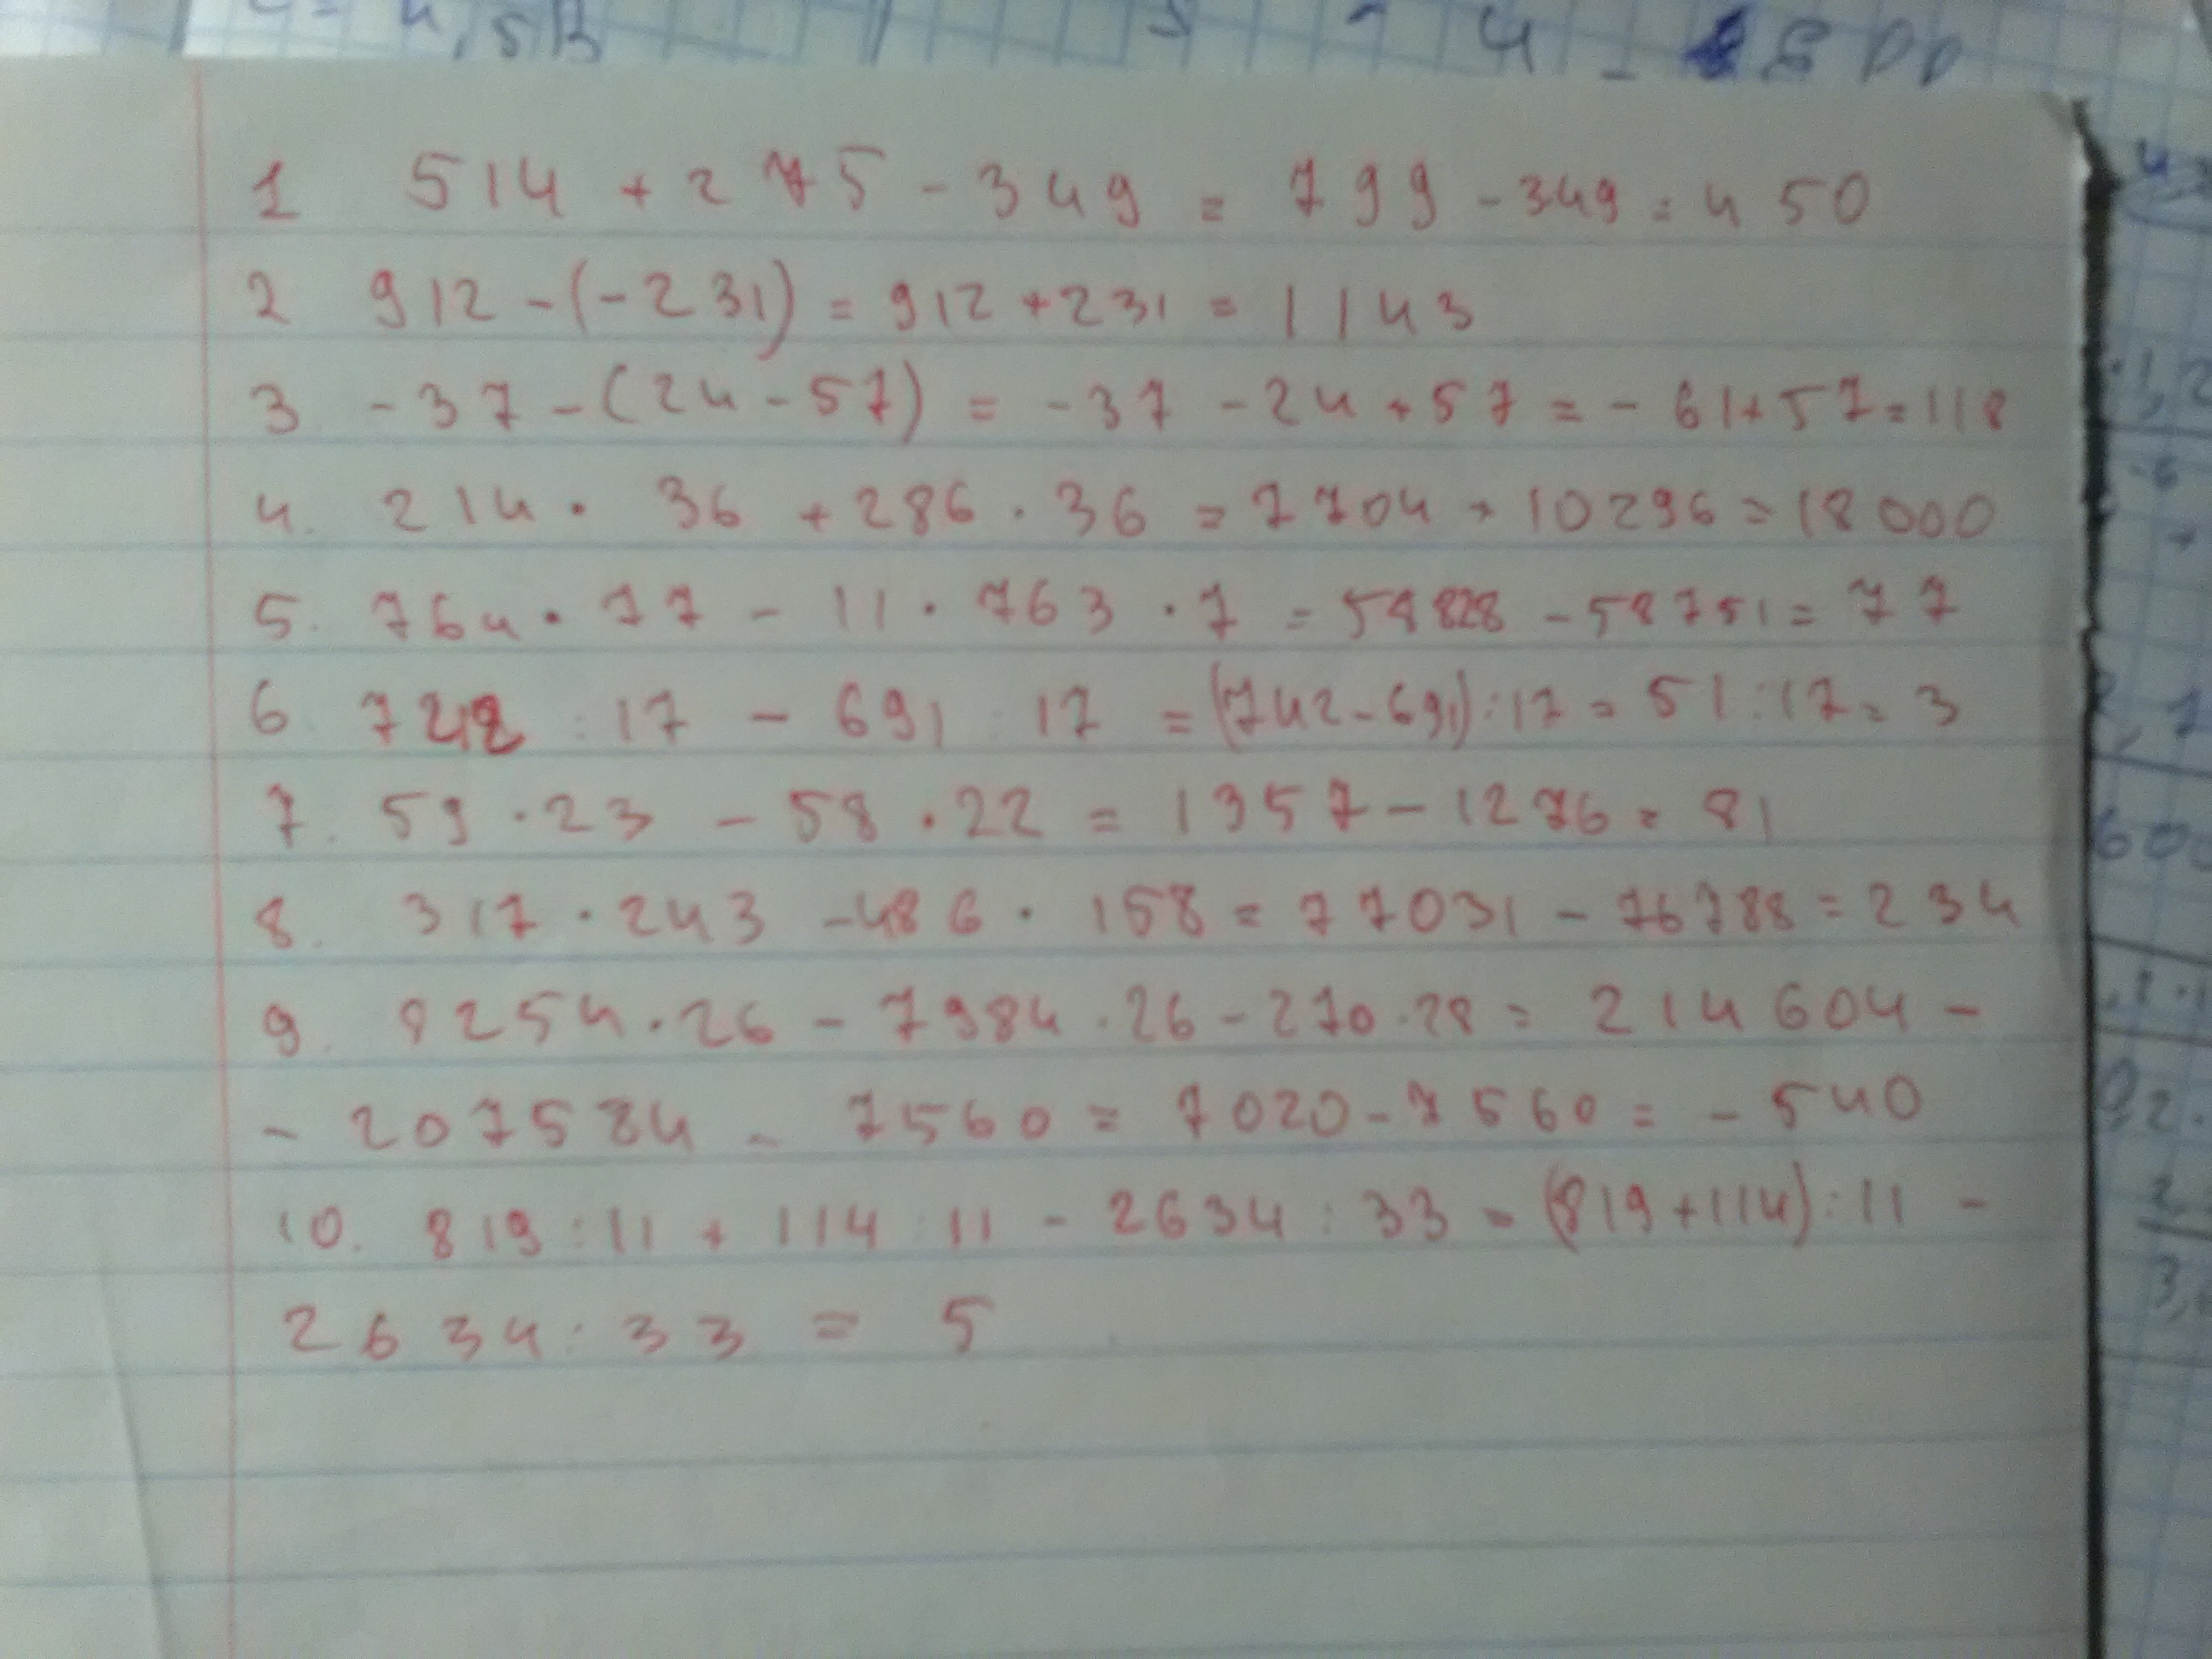 1 514 + 275 - 349 = 799 - 349 = 450
2 912 - (-231) = 912 + 231 = 1143
3 - 37 - (24 - 57) = - 37 - 24 + 57 = - 61 + 57 = 118
4. 214 · 36 + 286 · 36 = 7704 + 10296 = 18000
5. 764 · 77 - 11 · 763 · 7 = 58828 - 58751 = 77
6. 742 : 17 - 691 : 17 = (742 - 691) : 17 = 51 : 17 = 3
7. 59 · 23 - 58 · 22 = 1357 - 1276 = 81
8. 317 · 243 - 486 · 158 = 77031 - 76788 = 234
9. 8254 · 26 - 7984 · 26 - 270 · 28 = 214604 -
- 207584 - 7560 = 7020 - 7560 = - 540
10. 819 : 11 + 114 : 11 - 2634 : 33 = (819 + 114) : 11 -
2634 : 33 = 5